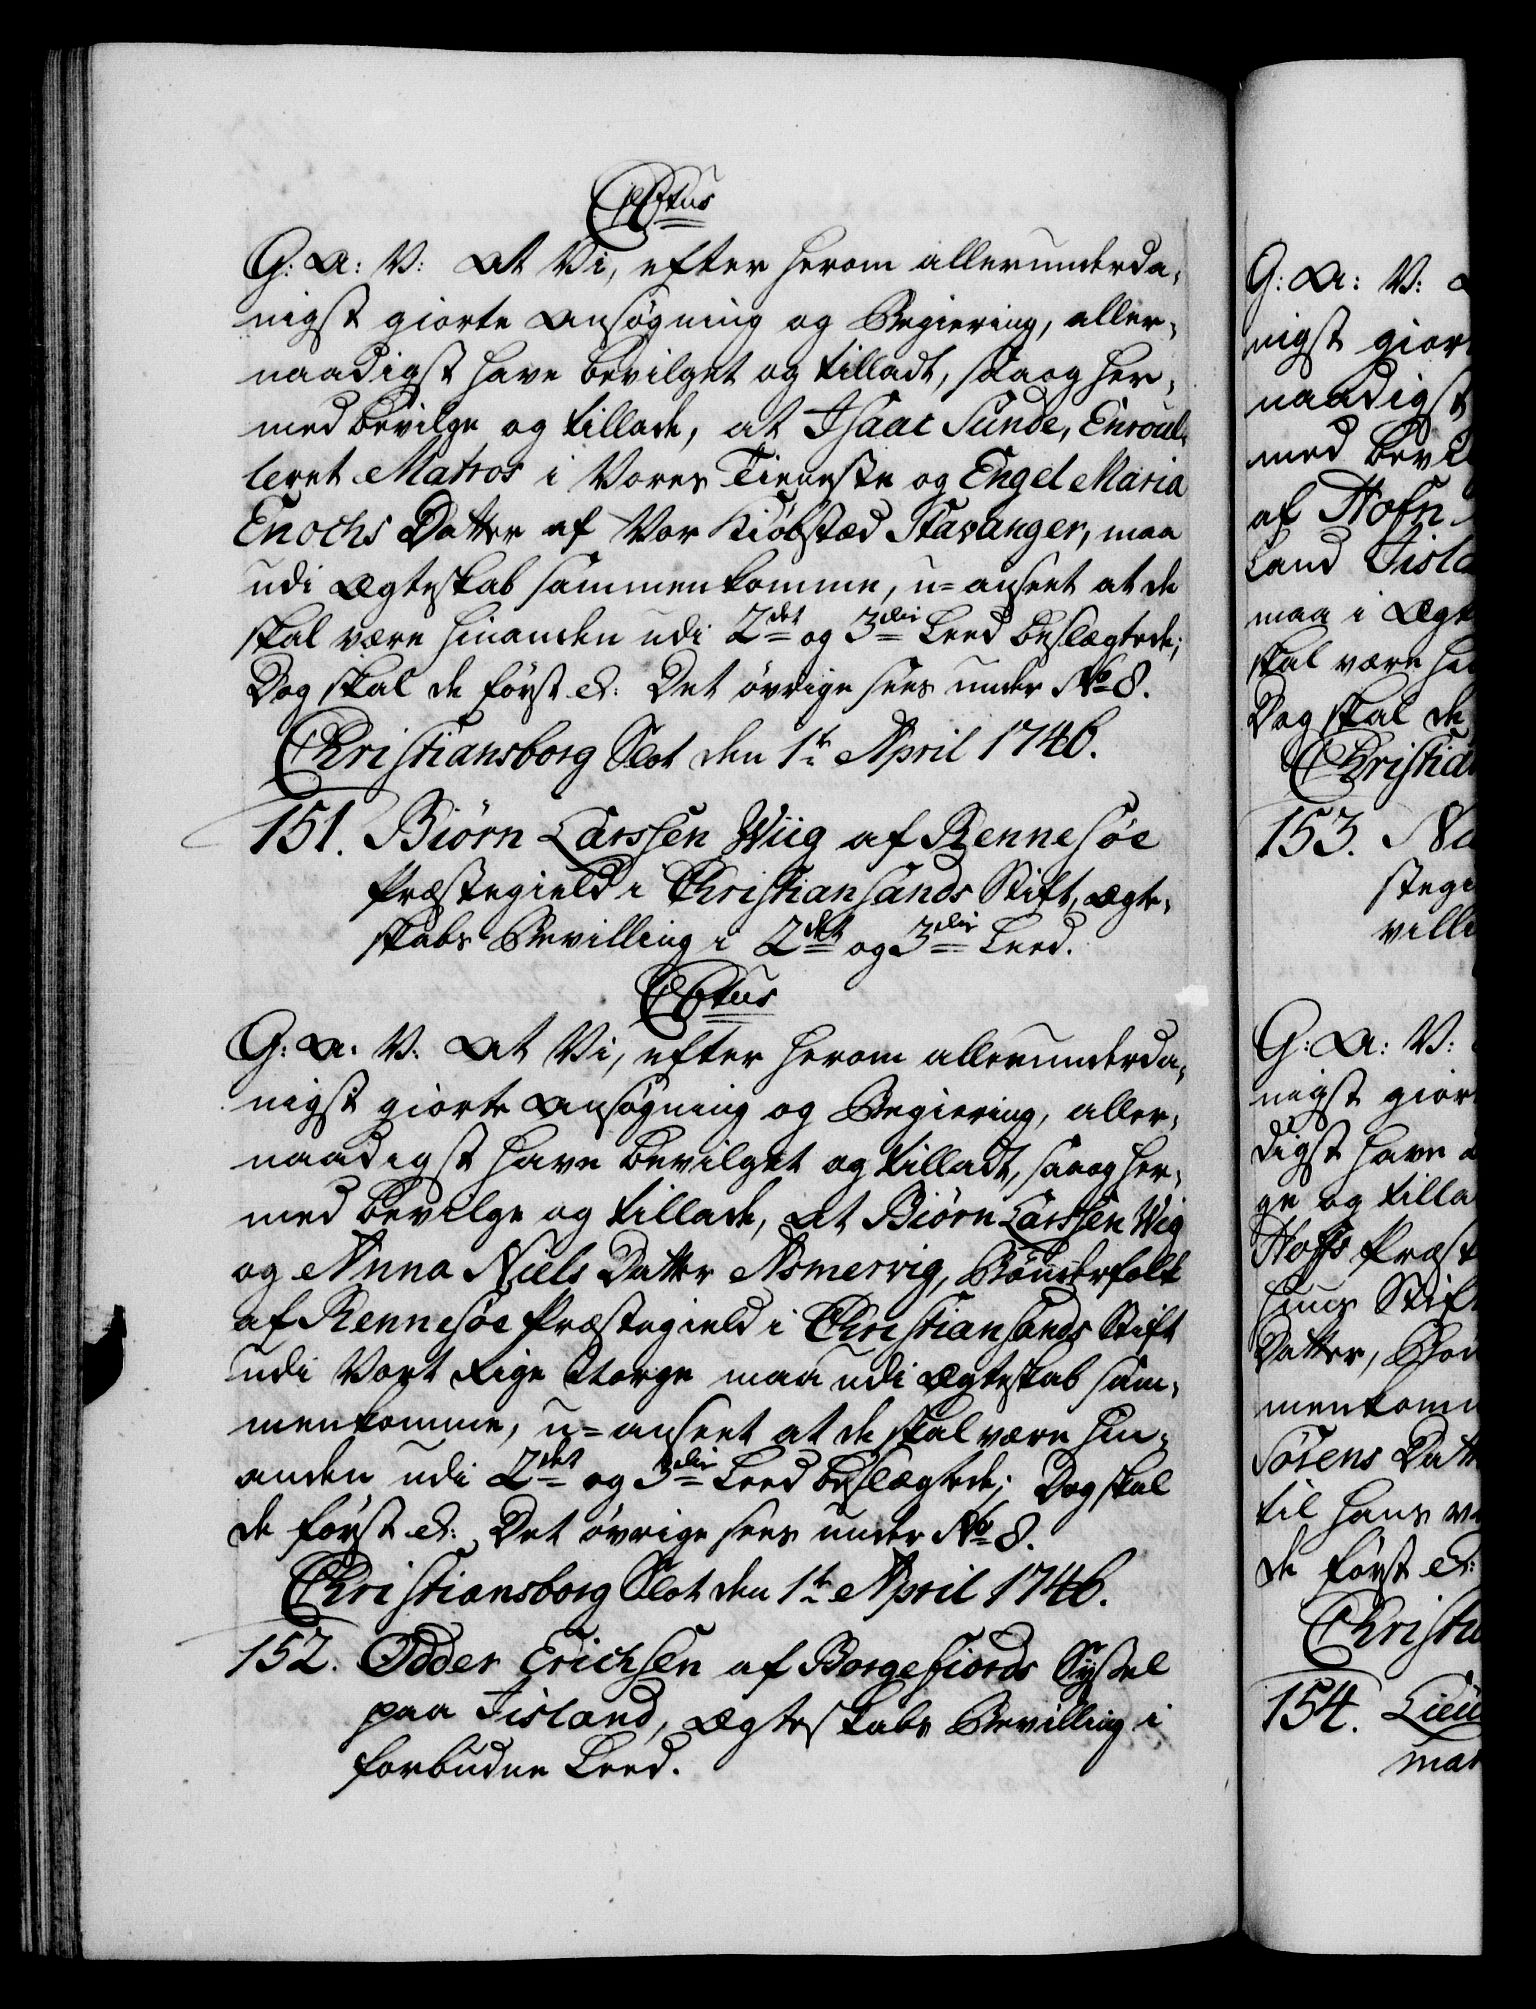 C6tus
G: A: V: At Vi, efter herom allerunderda-
nigst giorte Ansøgning og Begiering, aller-
naadigst have bevilget og tilladt, saa og her-
med bevilge og tillade, at Isaac Sunde, Enroul-
leret Matros i Vores Tieneste og Engel Maria
Enochs Datter af Vor Kiøbstæd Stavanger, maa
udi Ægteskab sammenkomme, u-anseet at de
skal være hinanden udi 2det og 3die Leed beslægtede;
Dog skal de først &: Det øvrige sees under No 8.
Christiansborg Slot den 1te April 1746.
151. Biørn Larssen Wiig af Rennesøe
Præstegield i Christiansands Stift, Ægte-
skabs Bevilling i 2det og 3die Leed.
C6tus
G: A: V: At Vi, efter herom allerunderda-
nigst giorte Ansøgning og Begiering, aller-
naadigst have bevilget og tilladt, saa og her-
med bevilge og tillade, at Biørn Larssen Wig
og Anna Niels Datter Asmervig, Bønderfolk
af Rennesøe Præstegield i Christiansands Stift
udi Vort Rige Norge maa udi Ægteskab sam-
menkomme, u-anseet at de skal være hin-
anden udi 2det og 3die Leed beslægtede; Dog skal
de først &: Det øvrige sees under No 8.
Christiansborg Slot den 1te April 1746.
152. Odder Erichsen af Borgefiords Syssel
paa Iisland, Ægteskabs Bevilling i
forbudne Leed.
G: A: V:
nigst gior
naadigst
med bevil
af Hofn
land Iisla
maa i Ægt
skal være hi
Dog skal de
Christia
153. Na
steg
villi
G: A: V:
nigst gior
digst have
ge og tilla
Hoffs Præst
huus Stif
Datter, Bø
menkom
Sørens Datt
til hans
de først &:
Christi
154. Lieu
mar